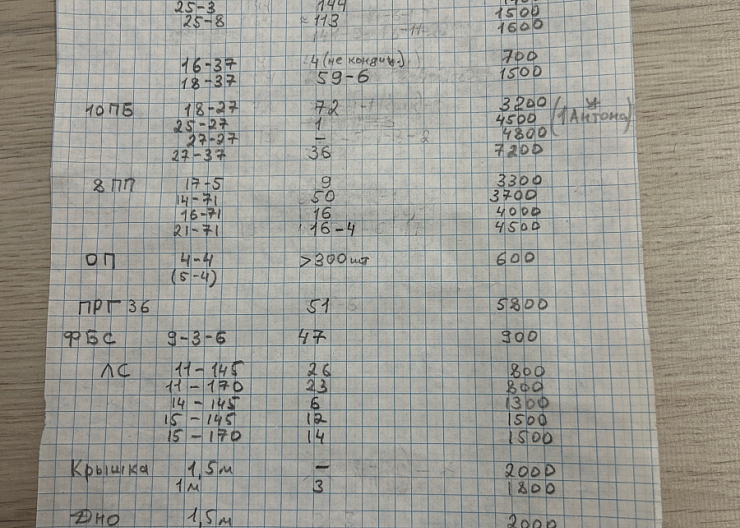 25-3 144
25-8 ≈113 1500
1600
16-37 4 (не кондиц.) 700
18-37 59-6 1500
10ПБ 18-27 72 3200
25-27 1 4500 (1 Антона)
27-27 — 4800
27-37 36 7200
8ПП 17-5 9 3300
14-71 50 3700
16-71 16 4000
21-71 16-4 4500
ОП 4-4 >300шт 600
(5-4)
ПРГ 36 51 5800
ФБС 9-3-6 47 900
ЛС 11-145 26 800
11-170 23 800
14-145 6 1300
15-145 12 1500
15-170 14 1500
Крышка 1,5м — 2000
1м 3 1800
Дно 1,5м 2000